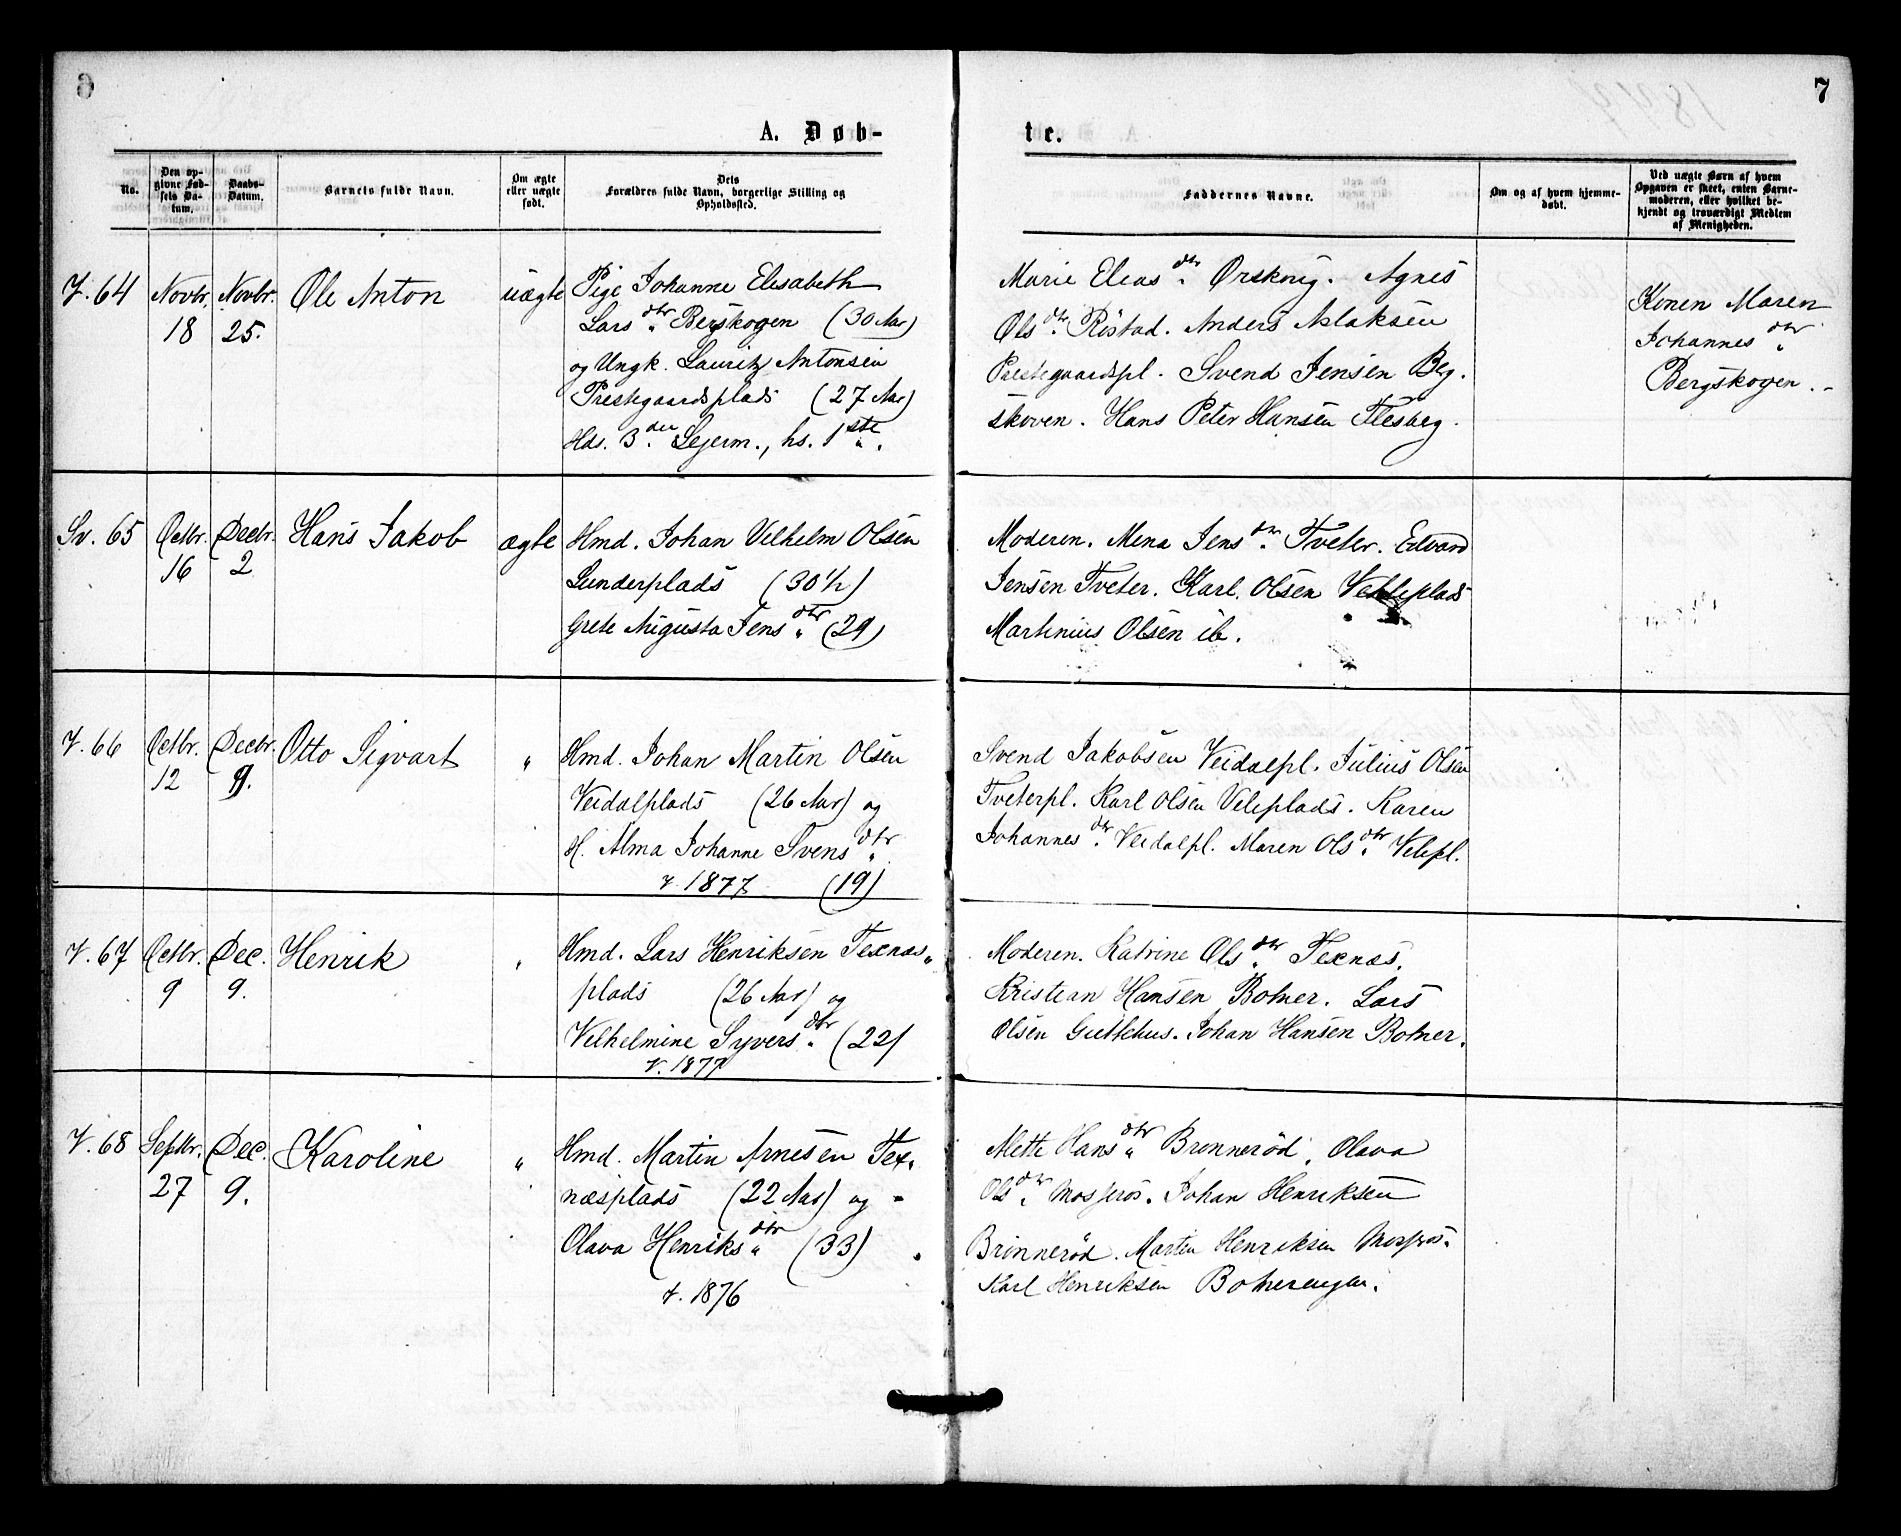 7
A. Døb-
te.
No.
Den op-
givne Fød-
sels Da-
tum.
Daabs-
Datum.
Barnets fulde Navn.
Om ægte
eller uægte
født.
Dets
Forældres fulde Navn, borgerlige Stilling og
Opholdssted.
Faddernes Navne.
Om og af hvem hjemme-
døbt.
Ved uægte Børn af hvem
Opgaven er skeet, enten Barne-
moderen, eller hvilket be-
kjendt og troværdigt Medlem
af Menigheden.
V. 64
Novbr.
18
Novbr.
25.
Ole Anton
uægte
Pige Johanne Elisabeth
Lars dtr Berskogen (30 Aar)
og Ungk. Lauritz Antonsen
Prestegaardsplads (27 Aar)
Hds. 3die Lejerm., hs. 1ste „.
Marie Elias dtr. Ørskoug. Agnes
Ols dtr. Röstad. Anders Aslaksen
Prestegaardspl. Svend Jensen Berg.
skoven. Hans Peter Hansen Flesberg.
Konen Maren
Johannes dtr
Bergskogen.
Sv. 65
Octbr.
16
Decbr.
2
Hans Jakob
ægte
Hmd. Johan Vilhelm Olsen
Lunderplads (30 1/2)
Grete Augusta Jens dtr (29)
Moderen. Mena Jens dtr. Tveter. Edvard
Jensen Tveter. Karl Olsen
Martinius Olsen ib.
V. 66
Octbr.
12
Decbr.
9.
Otto Sigvart
„
Hmd. Johan Martin Olsen
Veidalplads (26 Aar) og
H. Alma Johanne Svens dtr
v. 1877 (19)
Svend Jakobsen Veidalpl. Julius Olsen
Tveterpl. Karl Olsen Veleplads. Karen
Johannes dtr. Veidalpl. Maren Ols dtr Velepl.
V. 67
Octbr.
9
Dec.
9.
Henrik
„
Hmd. Lars Henriksen Texnæs„
plads (26 Aar) og
Vilhelmine Syvers dtr. (22)
v. 1877
Moderen. Katrine Ols dtr Texnæs.
Kristian Hansen Botner. Lars
Olsen Gutlehus. Johan Hansen Botner.
V. 68
Septbr.
27
Dec.
9.
Karoline
„
Hmd. Martin Arnesen Tex„
næsplads (22 Aar) og
Olava Henriks dtr (33)
v. 1876
Mette Hans dtr Brønnerød. Olava
Ols dtr. Mosjeros. Johan Henriksen
Brønnerød. Martin Henriksen Mosjeros.
Karl Henriksen Botnerengen.